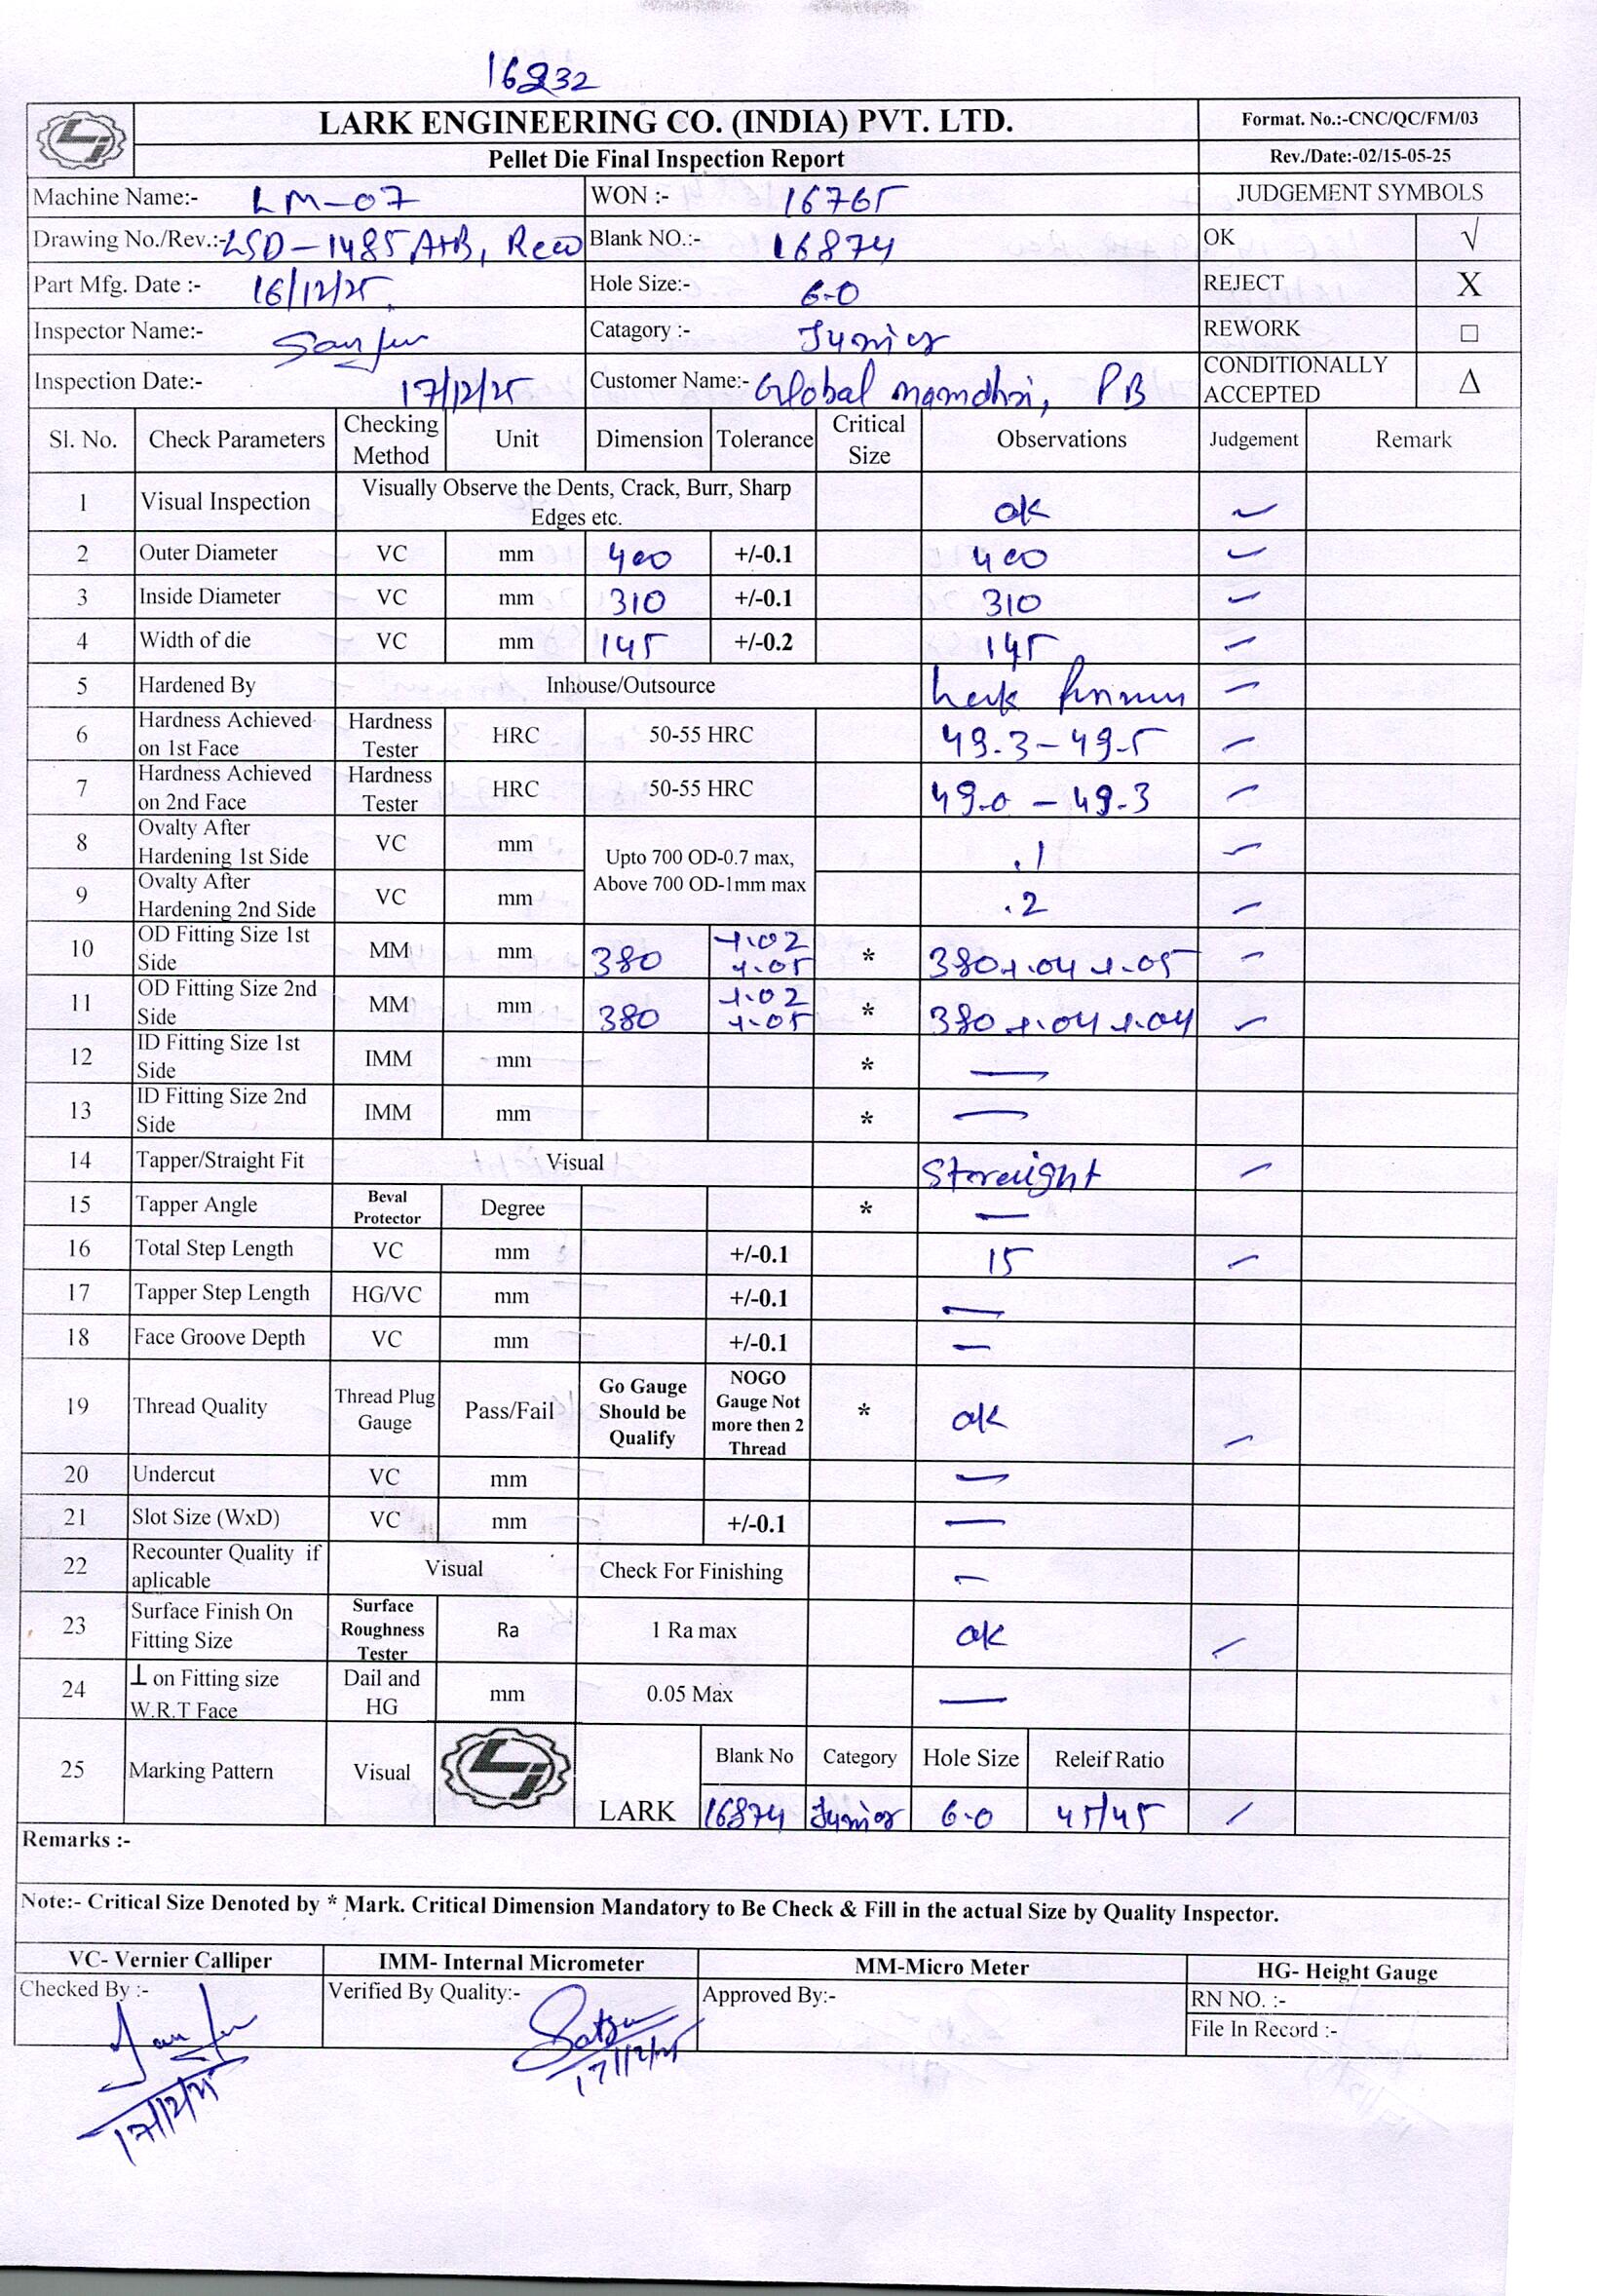 16832
LARK ENGINEERING CO. (INDIA) PVT. LTD.
Format. No.:-CNC/QC/FM/03
Pellet Die Final Inspection Report
Rev./Date:-02/15-05-25
Machine Name:- LM-07 WON :- 16765 JUDGEMENT SYMBOLS
Drawing No./Rev.:- LSD-1485 A+B, Rev0 Blank NO.:- 16874 OK √
Part Mfg. Date :- 16/12/25 Hole Size:- 6.0 REJECT X
Inspector Name:- Catagory :- Junior REWORK □
Inspection Date:- 17/12/25 Customer Name:- Global , PB CONDITIONALLY ACCEPTED Δ
Sl. No. Check Parameters Checking Method Unit Dimension Tolerance Critical Size Observations Judgement Remark
1 Visual Inspection Visually Observe the Dents, Crack, Burr, Sharp Edges etc. ok ✓
2 Outer Diameter VC mm 400 +/-0.1 400 ✓
3 Inside Diameter VC mm 310 +/-0.1 310 ✓
4 Width of die VC mm 145 +/-0.2 145 ✓
5 Hardened By Inhouse/Outsource ✓
6 Hardness Achieved on 1st Face Hardness Tester HRC 50-55 HRC 49.3-49.5 ✓
7 Hardness Achieved on 2nd Face Hardness Tester HRC 50-55 HRC 49.0 - 49.3 ✓
8 Ovalty After Hardening 1st Side VC mm Upto 700 OD-0.7 max, Above 700 OD-1mm max .1 ✓
9 Ovalty After Hardening 2nd Side VC mm .2 ✓
10 OD Fitting Size 1st Side MM mm 380 +.02 +.05 * 380+.04 +.05 ✓
11 OD Fitting Size 2nd Side MM mm 380 +.02 +.05 * 380 +.04 +.04 ✓
12 ID Fitting Size 1st Side IMM mm * —
13 ID Fitting Size 2nd Side IMM mm * —
14 Tapper/Straight Fit Visual Streight ✓
15 Tapper Angle Beval Protector Degree * —
16 Total Step Length VC mm +/-0.1 15 ✓
17 Tapper Step Length HG/VC mm +/-0.1 —
18 Face Groove Depth VC mm +/-0.1 —
19 Thread Quality Thread Plug Gauge Pass/Fail Go Gauge Should be Qualify NOGO Gauge Not more then 2 Thread * ok ✓
20 Undercut VC mm —
21 Slot Size (WxD) VC mm +/-0.1 —
22 Recounter Quality if aplicable Visual Check For Finishing —
23 Surface Finish On Fitting Size Surface Roughness Tester Ra 1 Ra max ok ✓
24 ⊥ on Fitting size W.R.T Face Dail and HG mm 0.05 Max —
25 Marking Pattern Visual LARK Blank No Category Hole Size Releif Ratio
16874 Junior 6.0 45/45 ✓
Remarks :-
Note:- Critical Size Denoted by * Mark. Critical Dimension Mandatory to Be Check & Fill in the actual Size by Quality Inspector.
VC- Vernier Calliper IMM- Internal Micrometer MM-Micro Meter HG- Height Gauge
Checked By :- Verified By Quality:- Approved By:- RN NO. :-
File In Record :-
17/12/25
17/12/25